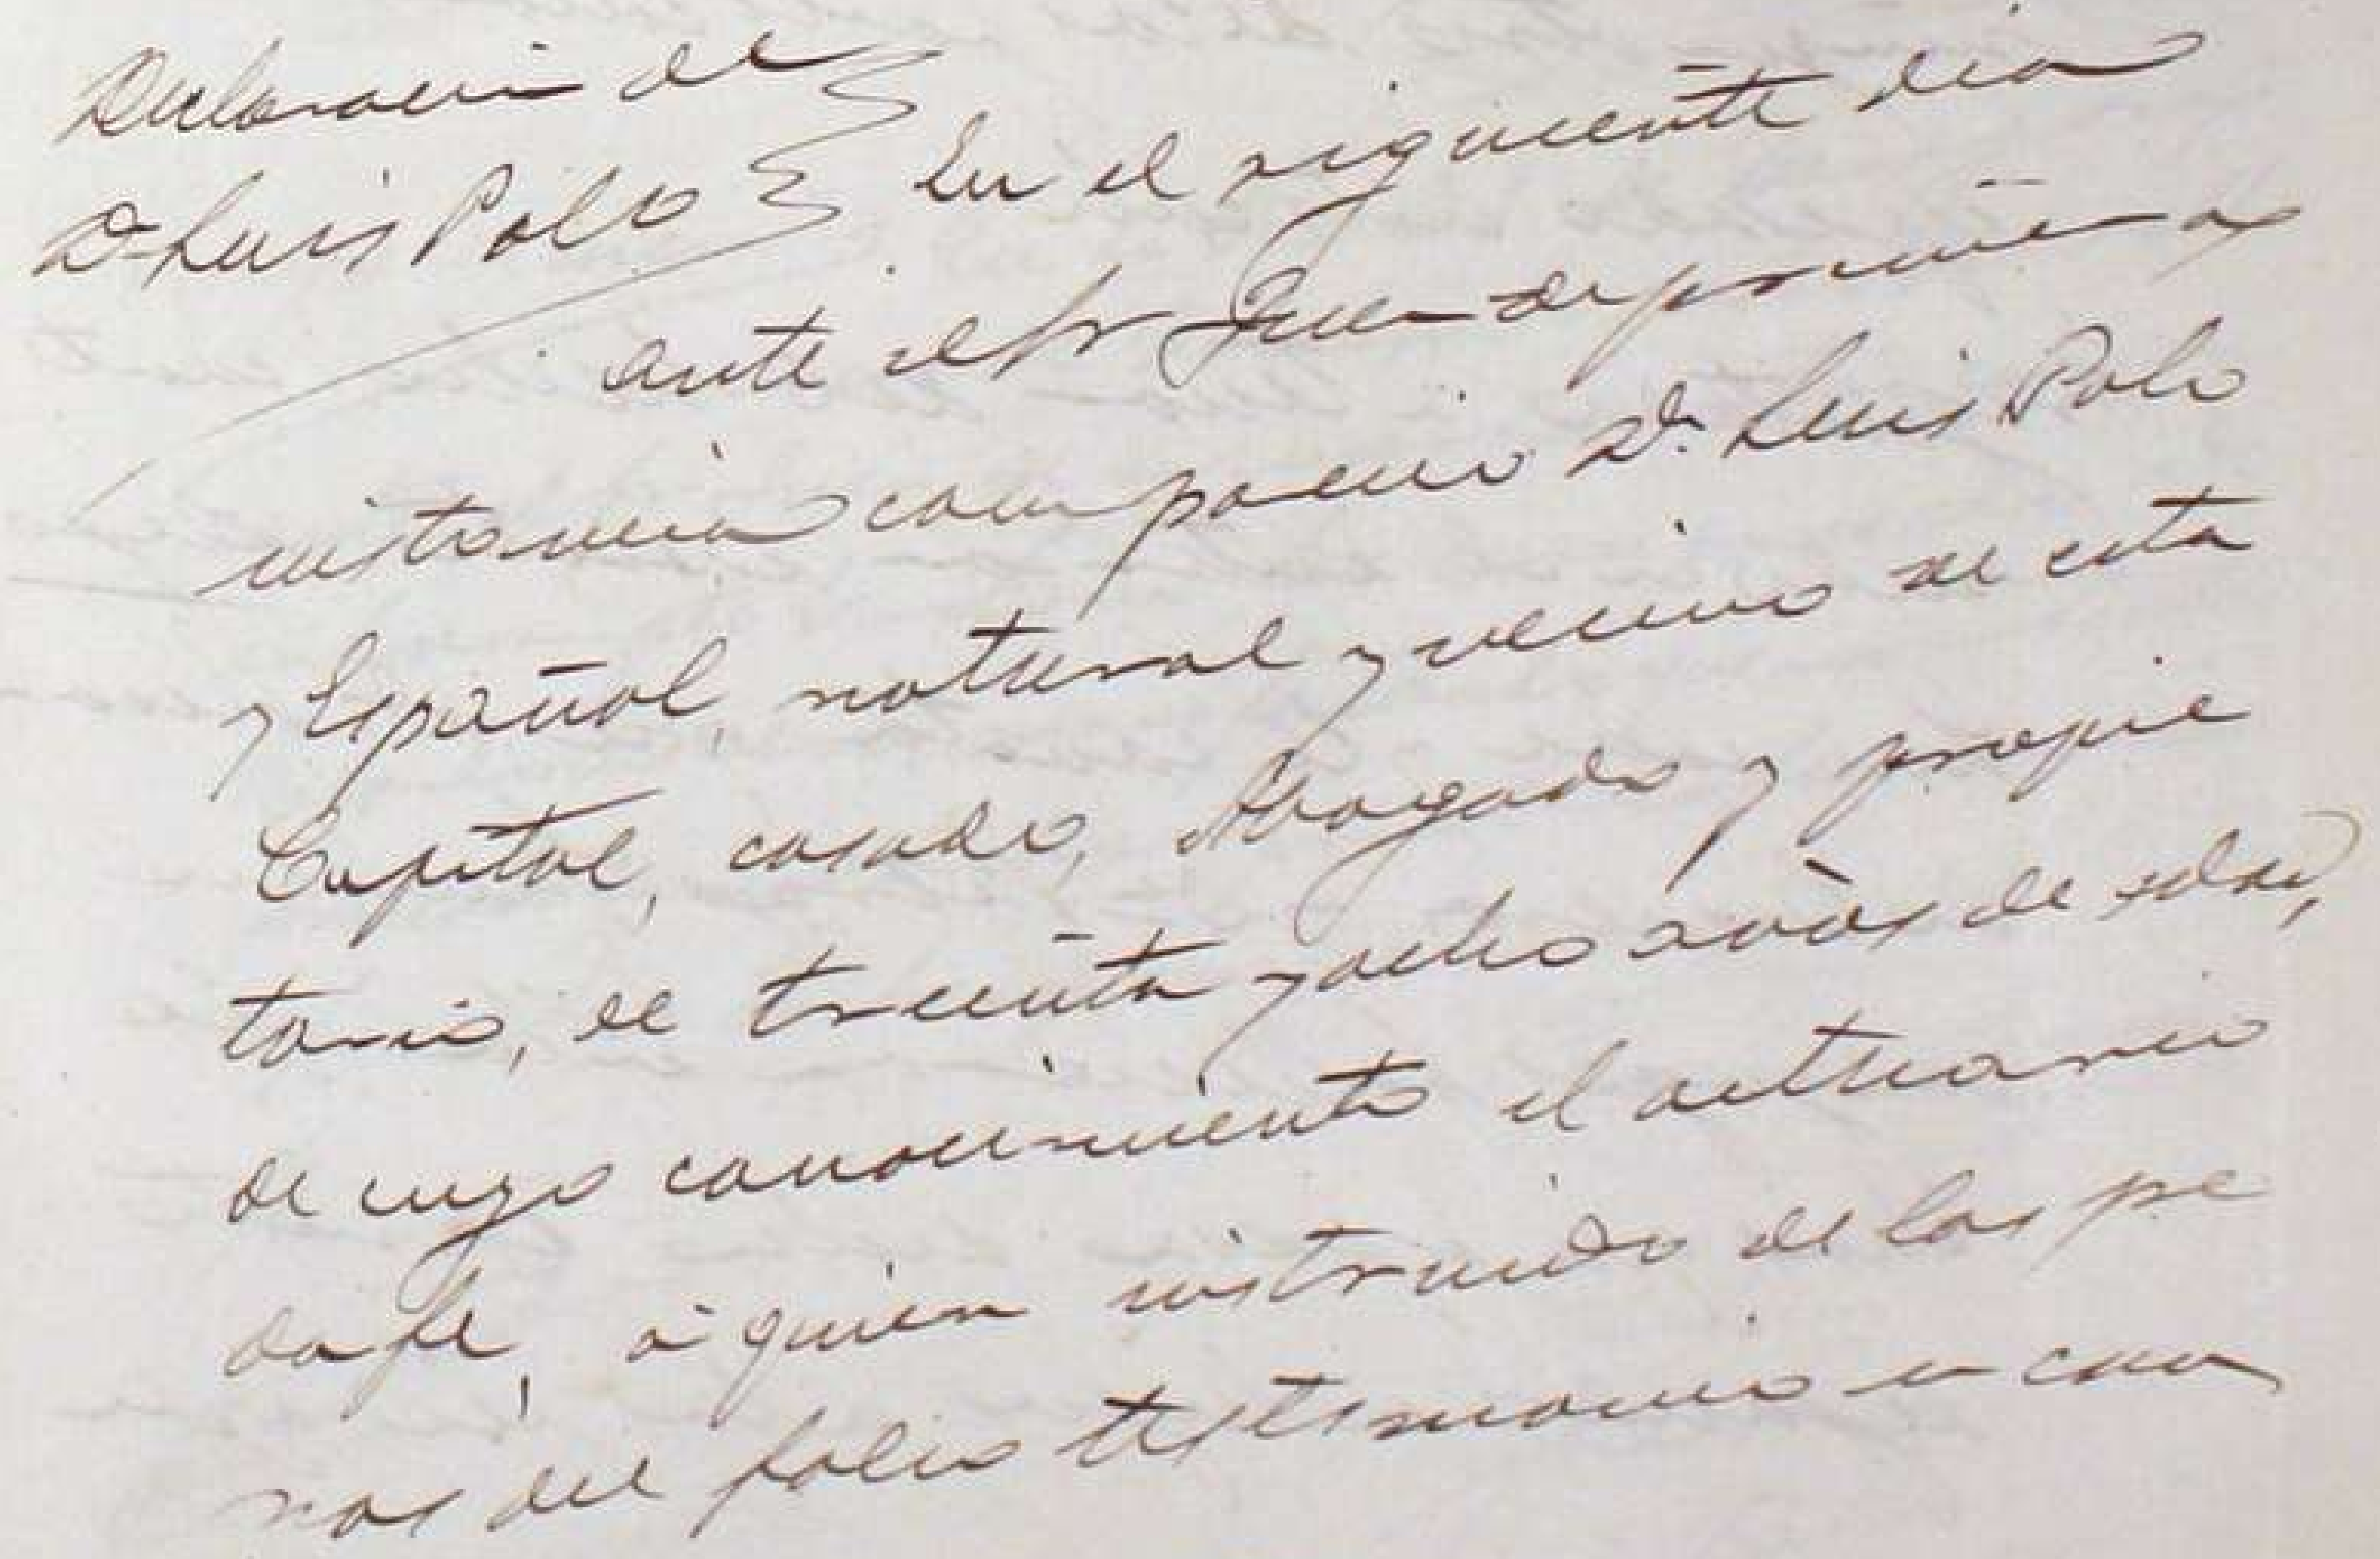 Declaracion de
Dn Luis Polo
En el siguiente dia
ante el Sr Juez de primera
instancia comparecio Dn Luis Polo
y Español, natural y vecino de esta
Capital, casado, Abogado y propie
tario, de treinta y ocho años de edad,
de cuyo conocimiento el actuario
da fe, á quien instruido de las pe
nas del falso testimonio en cau